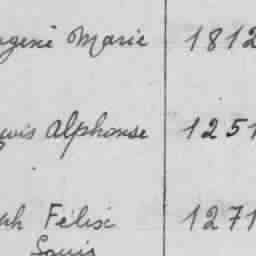 ugené Marie 1812
ouis Alphonse 1251
ph Félix 1271
Louis